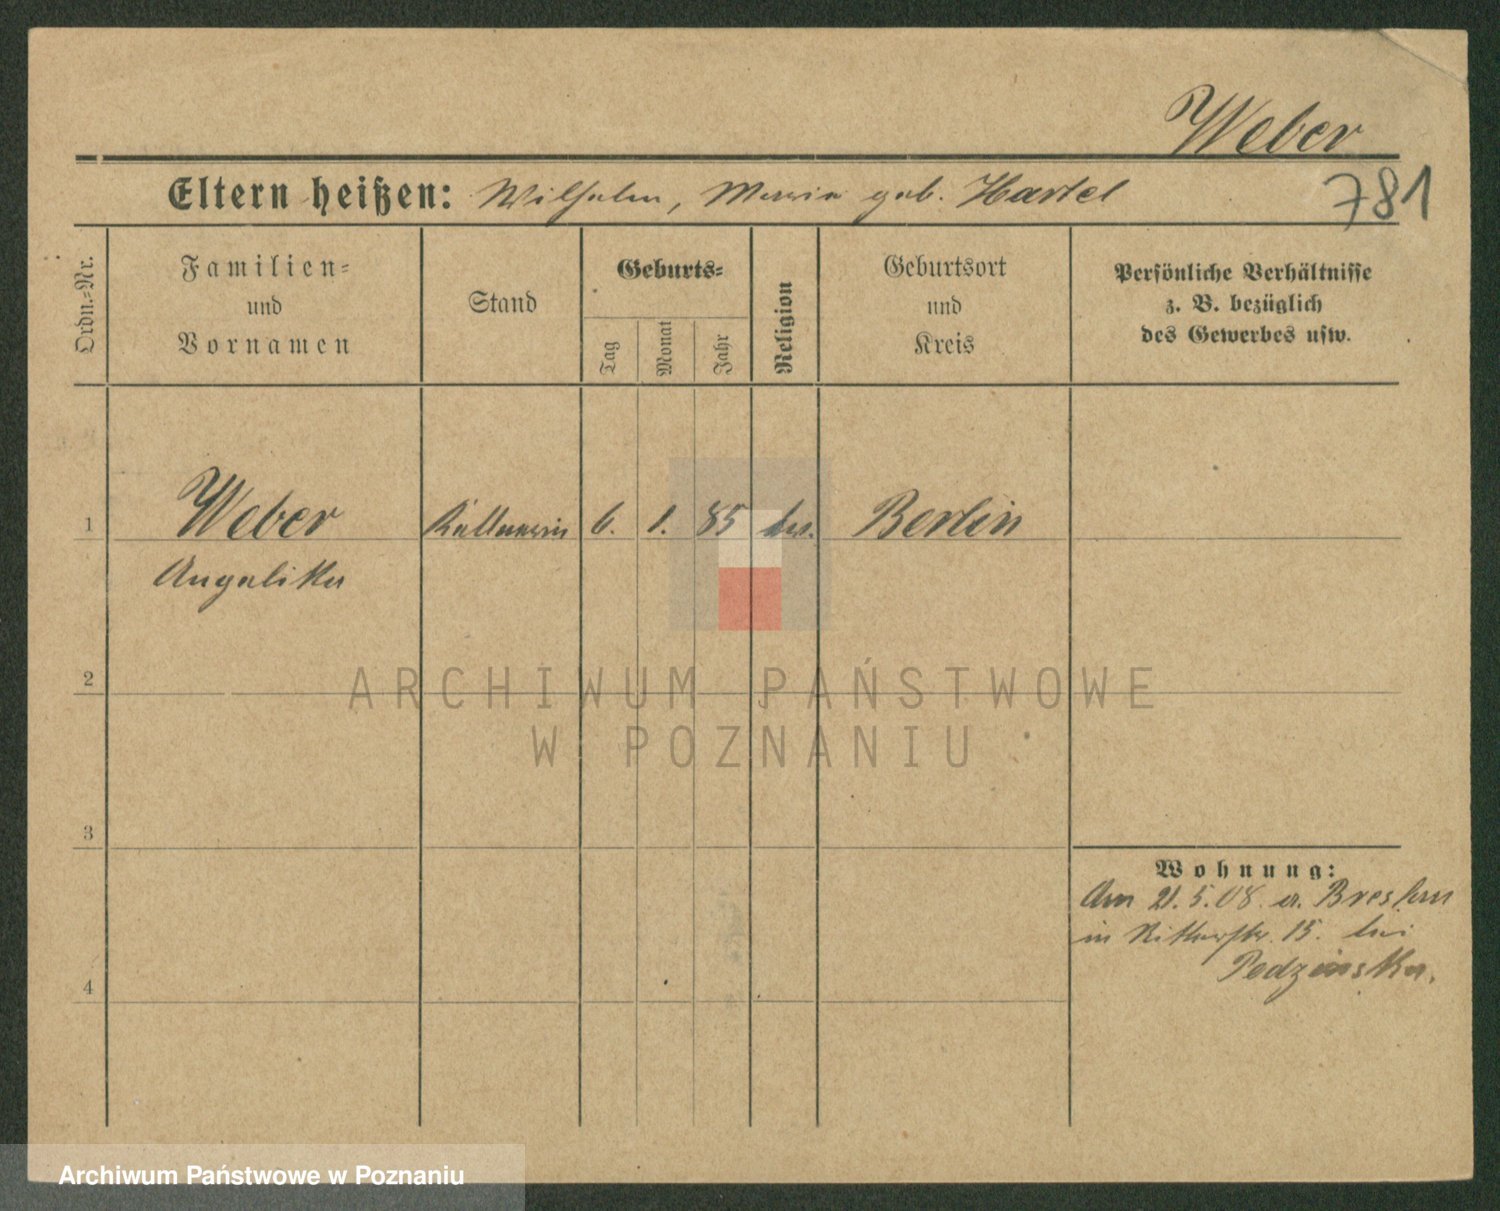 Weber
Eltern heißen: Wilhelm, Maria geb. Hartel
781
Ordn.-Nr.
Familien-
und
Vornamen
Stand
Geburts-
Tag
Monat
Jahr
Religion
Geburtsort
und
Kreis
Persönliche Verhältnisse
z. B. bezüglich
des Gewerbes usw.
1 Weber Kellnerin 6. 1. 85 Berlin
Angelika
2
ARCHIWUM PAŃSTWOWE
W POZNANIU
3
Wohnung:
Am 21.5.08. a. Breslau
in Ritterstr. 15. bei
4
Archiwum Państwowe w Poznaniu